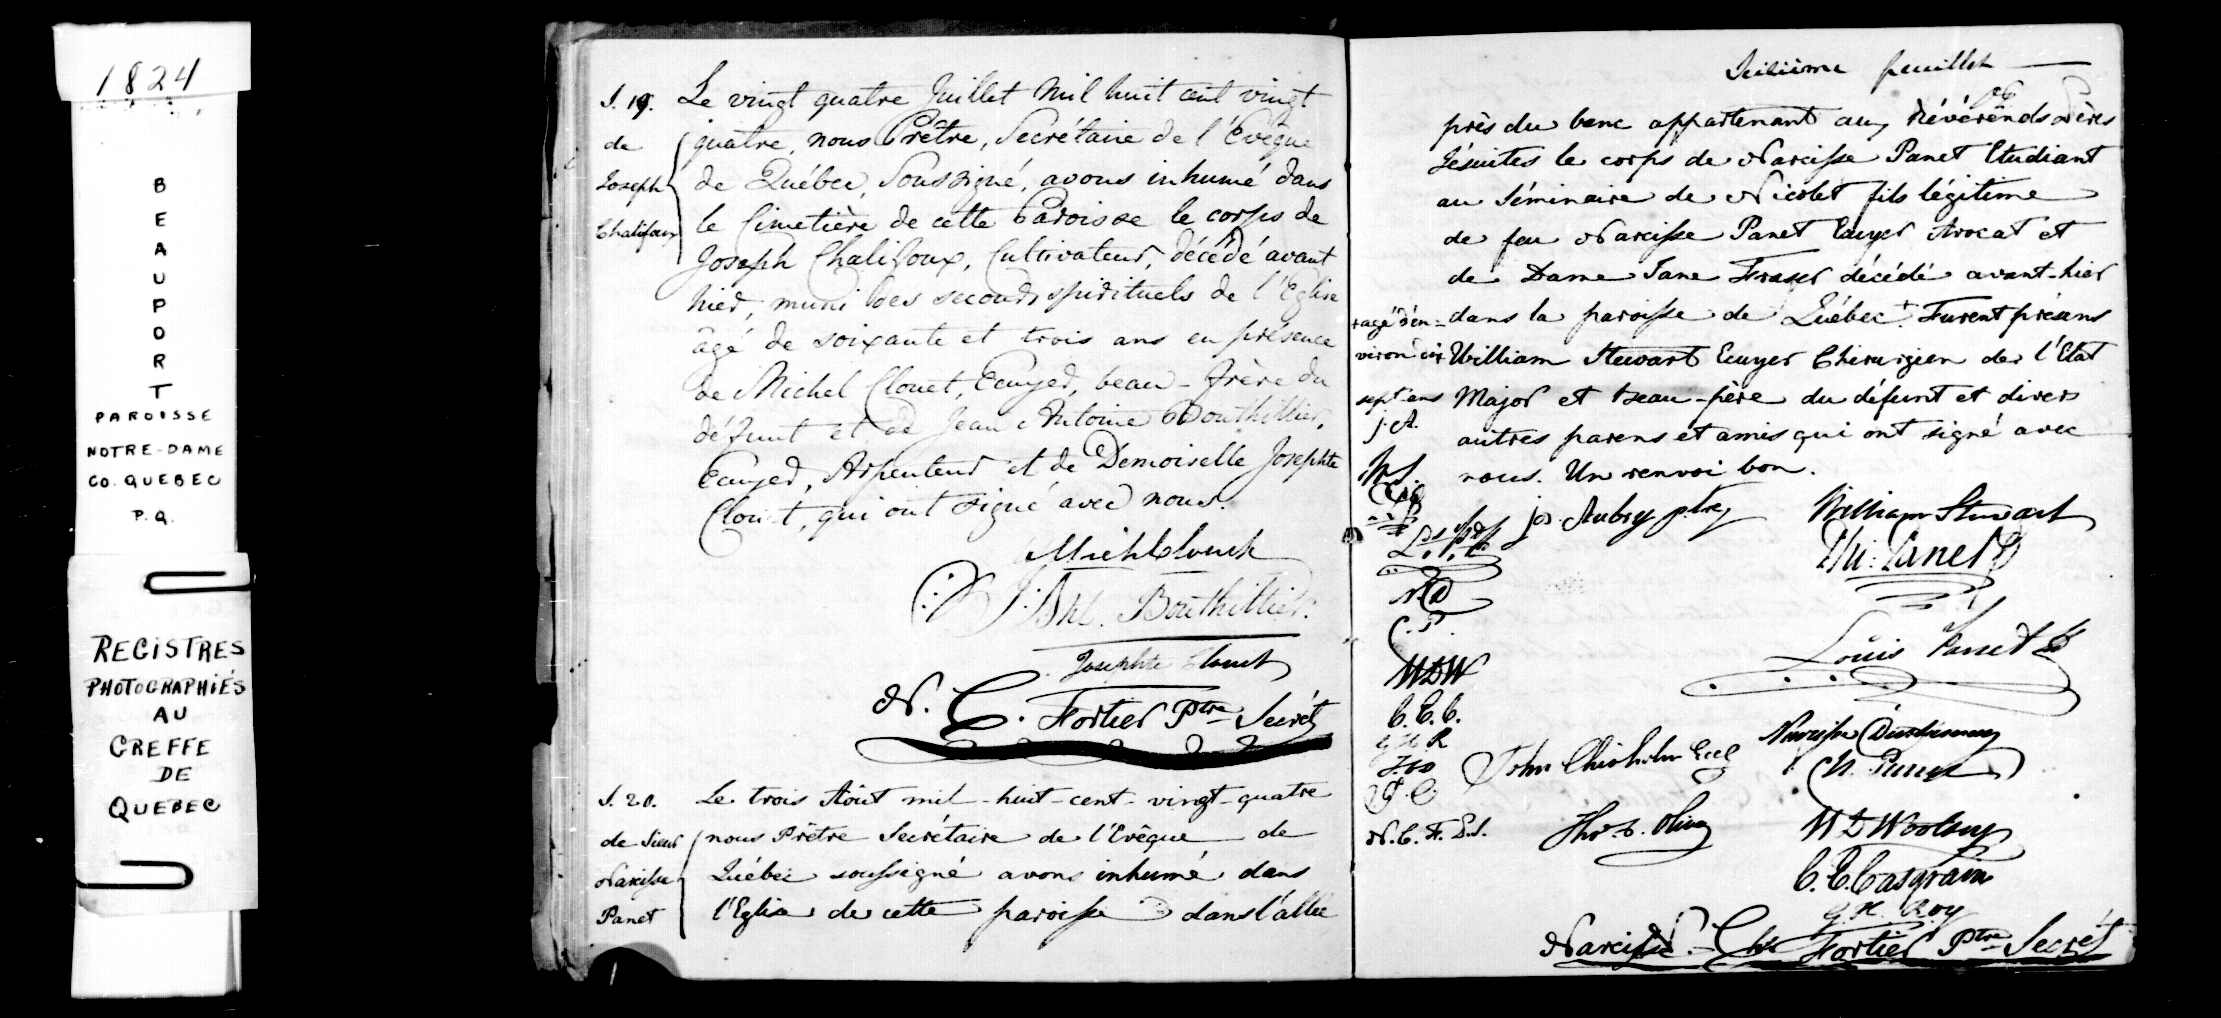 1824
BEAUPORT
PAROISSE
NOTRE-DAME
CO. QUEBEC
P.Q.
REGISTRES
PHOTOGRAPHIÉS
AU
GREFFE
DE
QUEBEC
S. 19.
de
Joseph
Chalifoux
Le vingt quatre Juillet mil huit cent vingt
quatre, nous Prêtre, Secrétaire de l'Evêque
de Québec, Soussigné, avons inhumé dans
le Cimetière de cette Paroisse le corps de
Joseph Chalifoux, Cultivateur, décédé avant
hier, muni des secours spirituels de l'Eglise
âgé de soixante et trois ans en présence
de Michel Clouet, Ecuyer, beau-frère du
défunt et de Jean Antoine Bouthillier,
Ecuyer, Arpenteur et de Demoiselle Josephte
Clouet, qui ont signé avec nous.
Michl Clouet
J: Ant. Bouthillier
Josephte Clouet
N. C. Fortier Ptre Secrét
S. 20.
de Sieur
Narcisse
Panet
Le trois Aôut mil-huit-cent-vingt-quatre
nous Prêtre Secrétaire de l'Evêque de
Québec soussigné avons inhumé dans
l'Eglise de cette paroisse dans l'allée
Seizième feuillet
près du banc appartenant aux Révérends Pères
Jésuites le corps de Narcisse Panet Etudiant
au Séminaire de Nicolet fils légitime
de feu Narcisse Panet Ecuyer Avocat et
de Dame Jane Fraser décédé avant-hier
dans la paroisse de Québec + Furent présens
William Stewart Ecuyer Chirurgien de l'Etat
Major et beau-père du défunt et divers
autres parens et amis qui ont signé avec
nous. Un renvoi bon.
+ agé d'en-
viron dix
sept ans
j. A.
W S.
N.D
C. P.
WDW
C. E. C.
G H R
N. C. F. P.S.
jos. Aubry ptre
William Stewart
Phi: Panet
Louis Panet
Narcisse Duchesnay
John Chisholm
Ch. Panet
W D Woolsey
C. E. Casgrain
G. H. Roy
Narcisse Chs Fortier Ptre Secrét